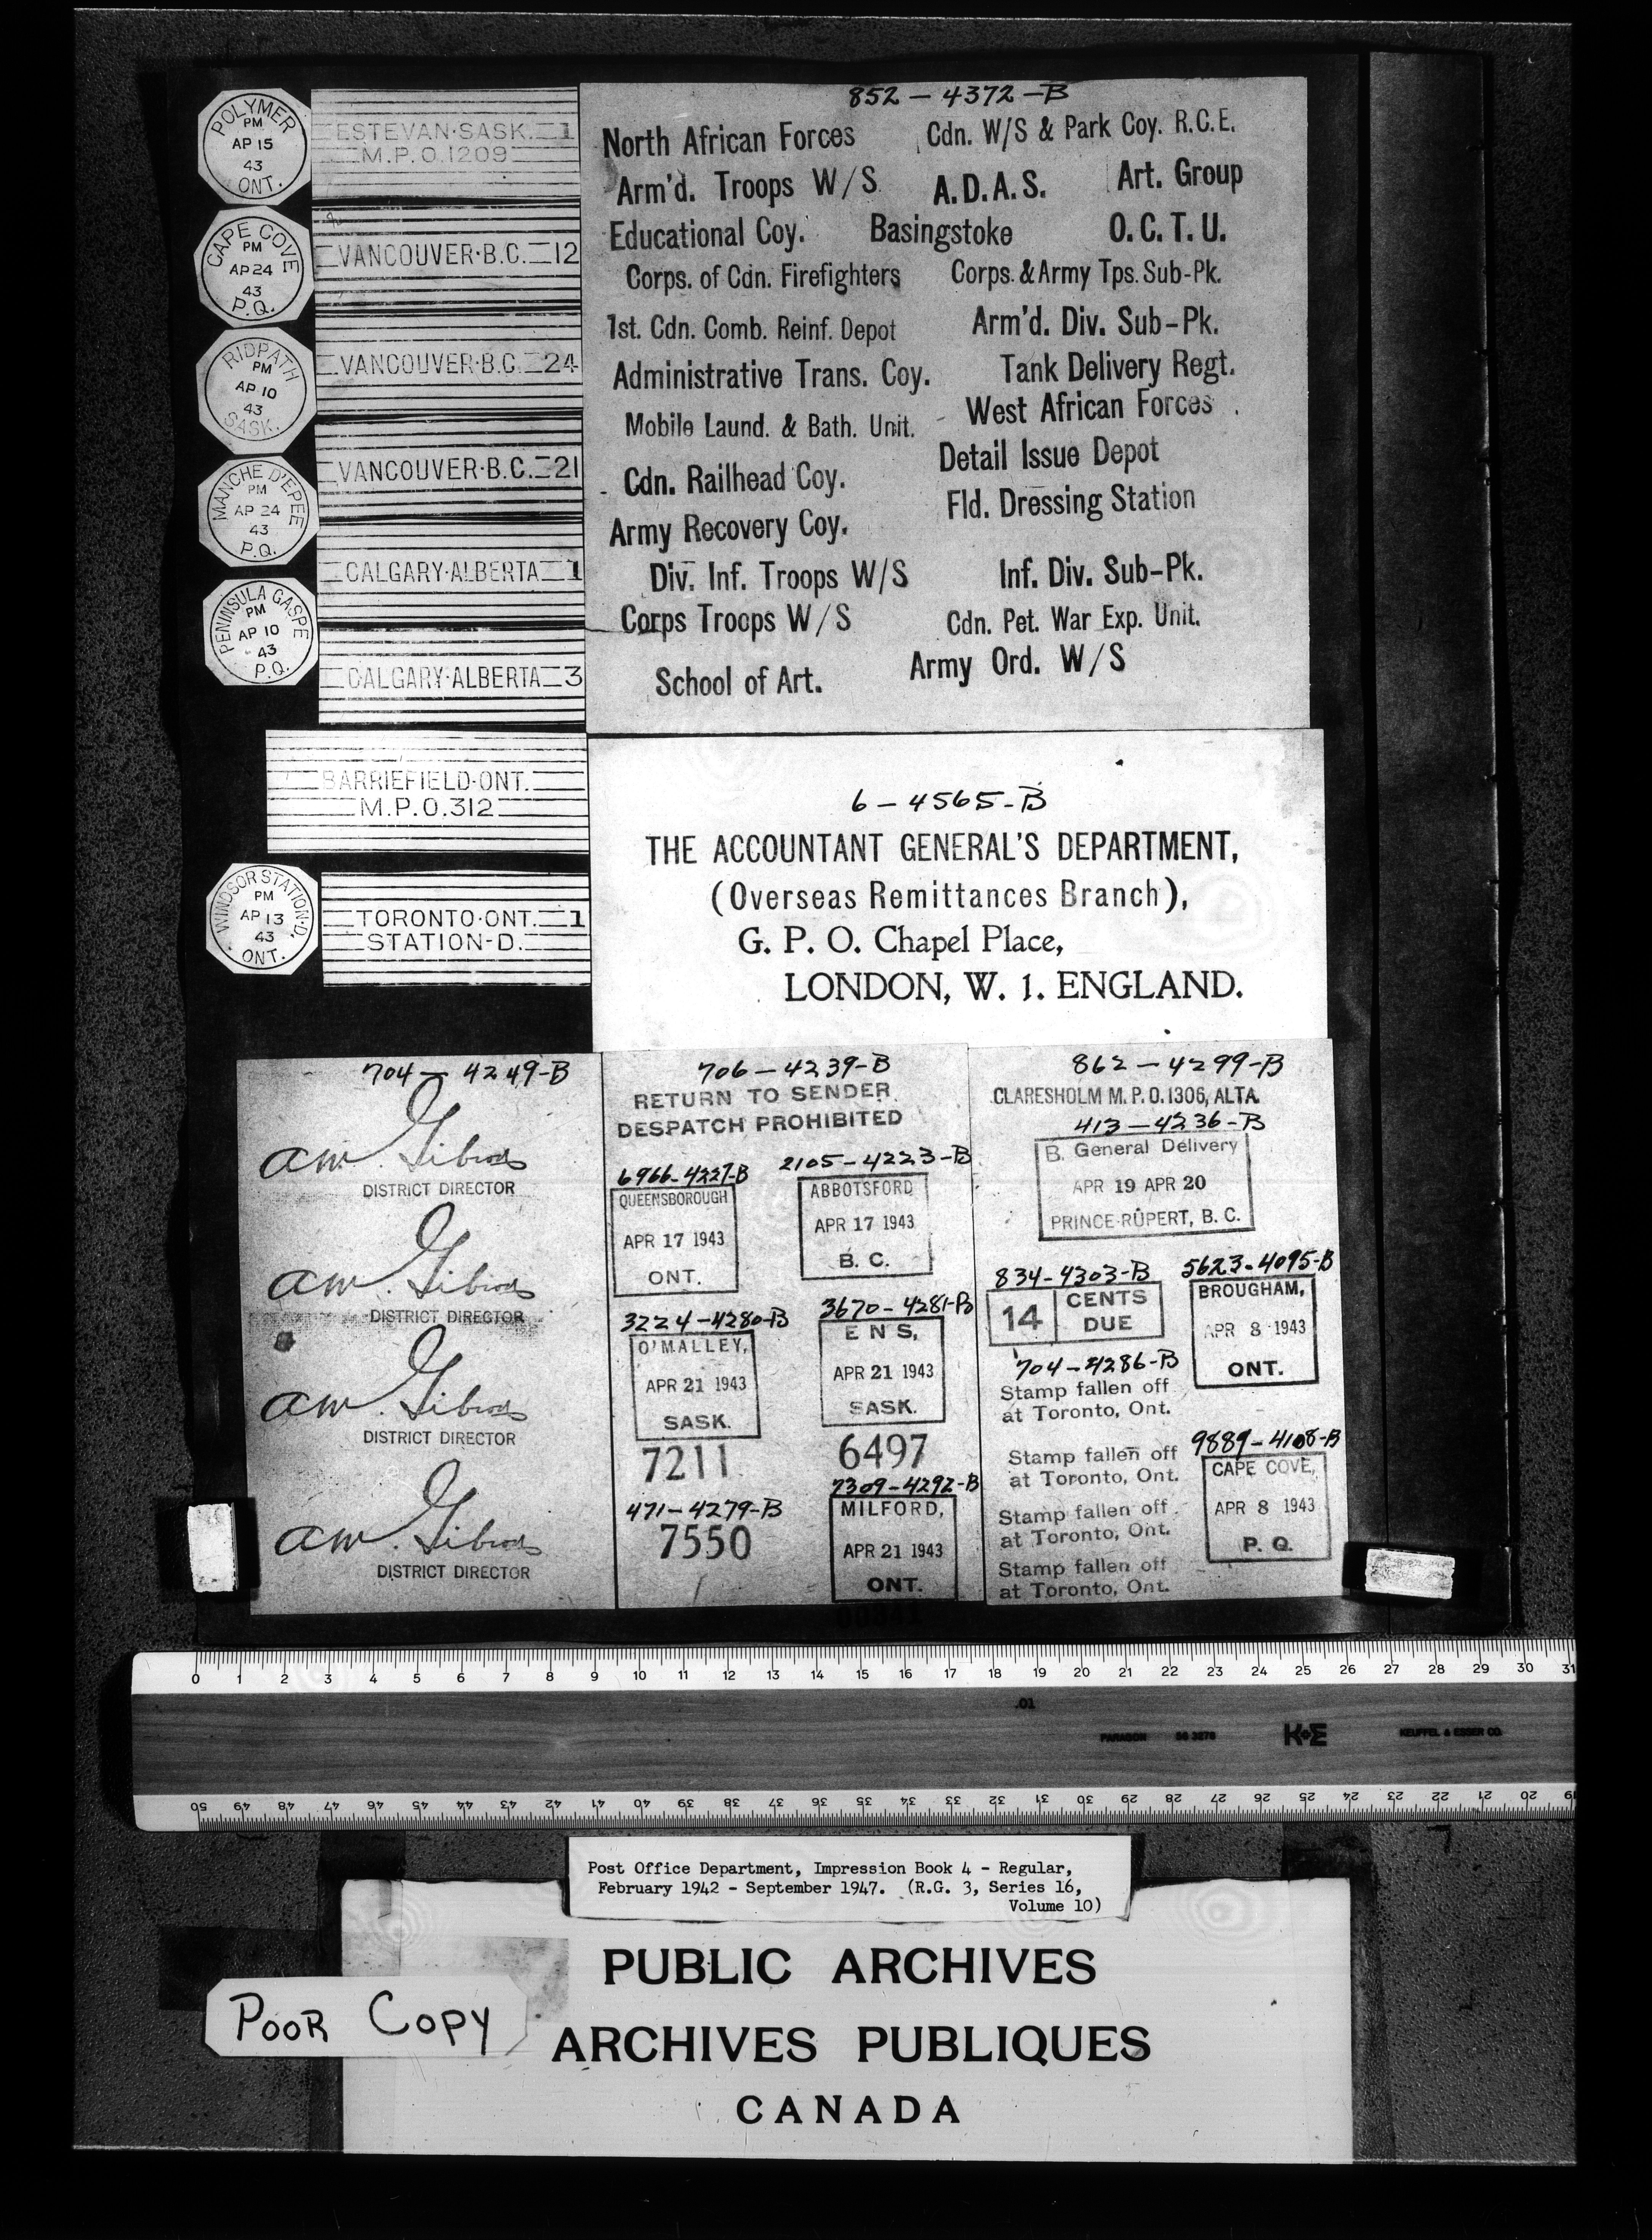 POLYMER
PM
AP 15
43
ONT.
CAPE COVE
PM
AP 24
43
P.Q.
RIDPATH
PM
AP 10
43
SASK.
MANCHE D'EPEE
PM
AP 24
43
P.Q.
PENINSULA GASPE
PM
AP 10
43
P.Q.
WINDSOR STATION-D.
PM
AP 13
43
ONT.
ESTEVAN·SASK. 1
M.P.O.1209
VANCOUVER·B.C. 12
VANCOUVER·B.C. 24
VANCOUVER·B.C. 21
CALGARY·ALBERTA 1
CALGARY·ALBERTA 3
BARRIEFIELD·ONT.
M.P.O.312
TORONTO·ONT. 1
STATION-D.
852-4372-B
North African Forces Cdn. W/S & Park Coy. R.C.E.
Arm'd. Troops W/S A.D.A.S. Art. Group
Educational Coy. Basingstoke O.C.T.U.
Corps. of Cdn. Firefighters Corps. & Army Tps. Sub-Pk.
1st. Cdn. Comb. Reinf. Depot Arm'd. Div. Sub-Pk.
Administrative Trans. Coy. Tank Delivery Regt.
Mobile Laund. & Bath. Unit. West African Forces
Cdn. Railhead Coy. Detail Issue Depot
Army Recovery Coy. Fld. Dressing Station
Div. Inf. Troops W/S Inf. Div. Sub-Pk.
Corps Troops W/S Cdn. Pet. War Exp. Unit.
School of Art. Army Ord. W/S
6-4565-B
THE ACCOUNTANT GENERAL'S DEPARTMENT,
(Overseas Remittances Branch),
G. P. O. Chapel Place,
LONDON, W. 1. ENGLAND.
704-4249-B
DISTRICT DIRECTOR
DISTRICT DIRECTOR
DISTRICT DIRECTOR
DISTRICT DIRECTOR
706-4239-B
RETURN TO SENDER
DESPATCH PROHIBITED
6966-4227-B
QUEENSBOROUGH
APR 17 1943
ONT.
2105-4223-B
ABBOTSFORD
APR 17 1943
B. C.
3224-4280-B
O'MALLEY,
APR 21 1943
SASK.
3670-4281-B
ENS,
APR 21 1943
SASK.
7211
6497
471-4279-B
7550
7309-4292-B
MILFORD,
APR 21 1943
ONT.
862-4299-B
CLARESHOLM M.P.O.1306, ALTA.
413-4236-B
B. General Delivery
APR 19 APR 20
PRINCE RUPERT, B. C.
834-4303-B
14 CENTS
DUE
5623-4095-B
BROUGHAM,
APR 8 1943
ONT.
704-4286-B
Stamp fallen off
at Toronto, Ont.
Stamp fallen off
at Toronto, Ont.
Stamp fallen off
at Toronto, Ont.
Stamp fallen off
at Toronto, Ont.
9889-4108-B
CAPE COVE,
APR 8 1943
P. Q.
00841
0 1 2 3 4 5 6 7 8 9 10 11 12 13 14 15 16 17 18 19 20 21 22 23 24 25 26 27 28 29 30 31
.01
PARAGON 56 3276 K+E KEUFFEL & ESSER CO.
50 49 48 47 46 45 44 43 42 41 40 39 38 37 36 35 34 33 32 31 30 29 28 27 26 25 24 23 22 21 20 19
Post Office Department, Impression Book 4 - Regular,
February 1942 - September 1947. (R.G. 3, Series 16,
Volume 10)
PUBLIC ARCHIVES
POOR COPY
ARCHIVES PUBLIQUES
CANADA